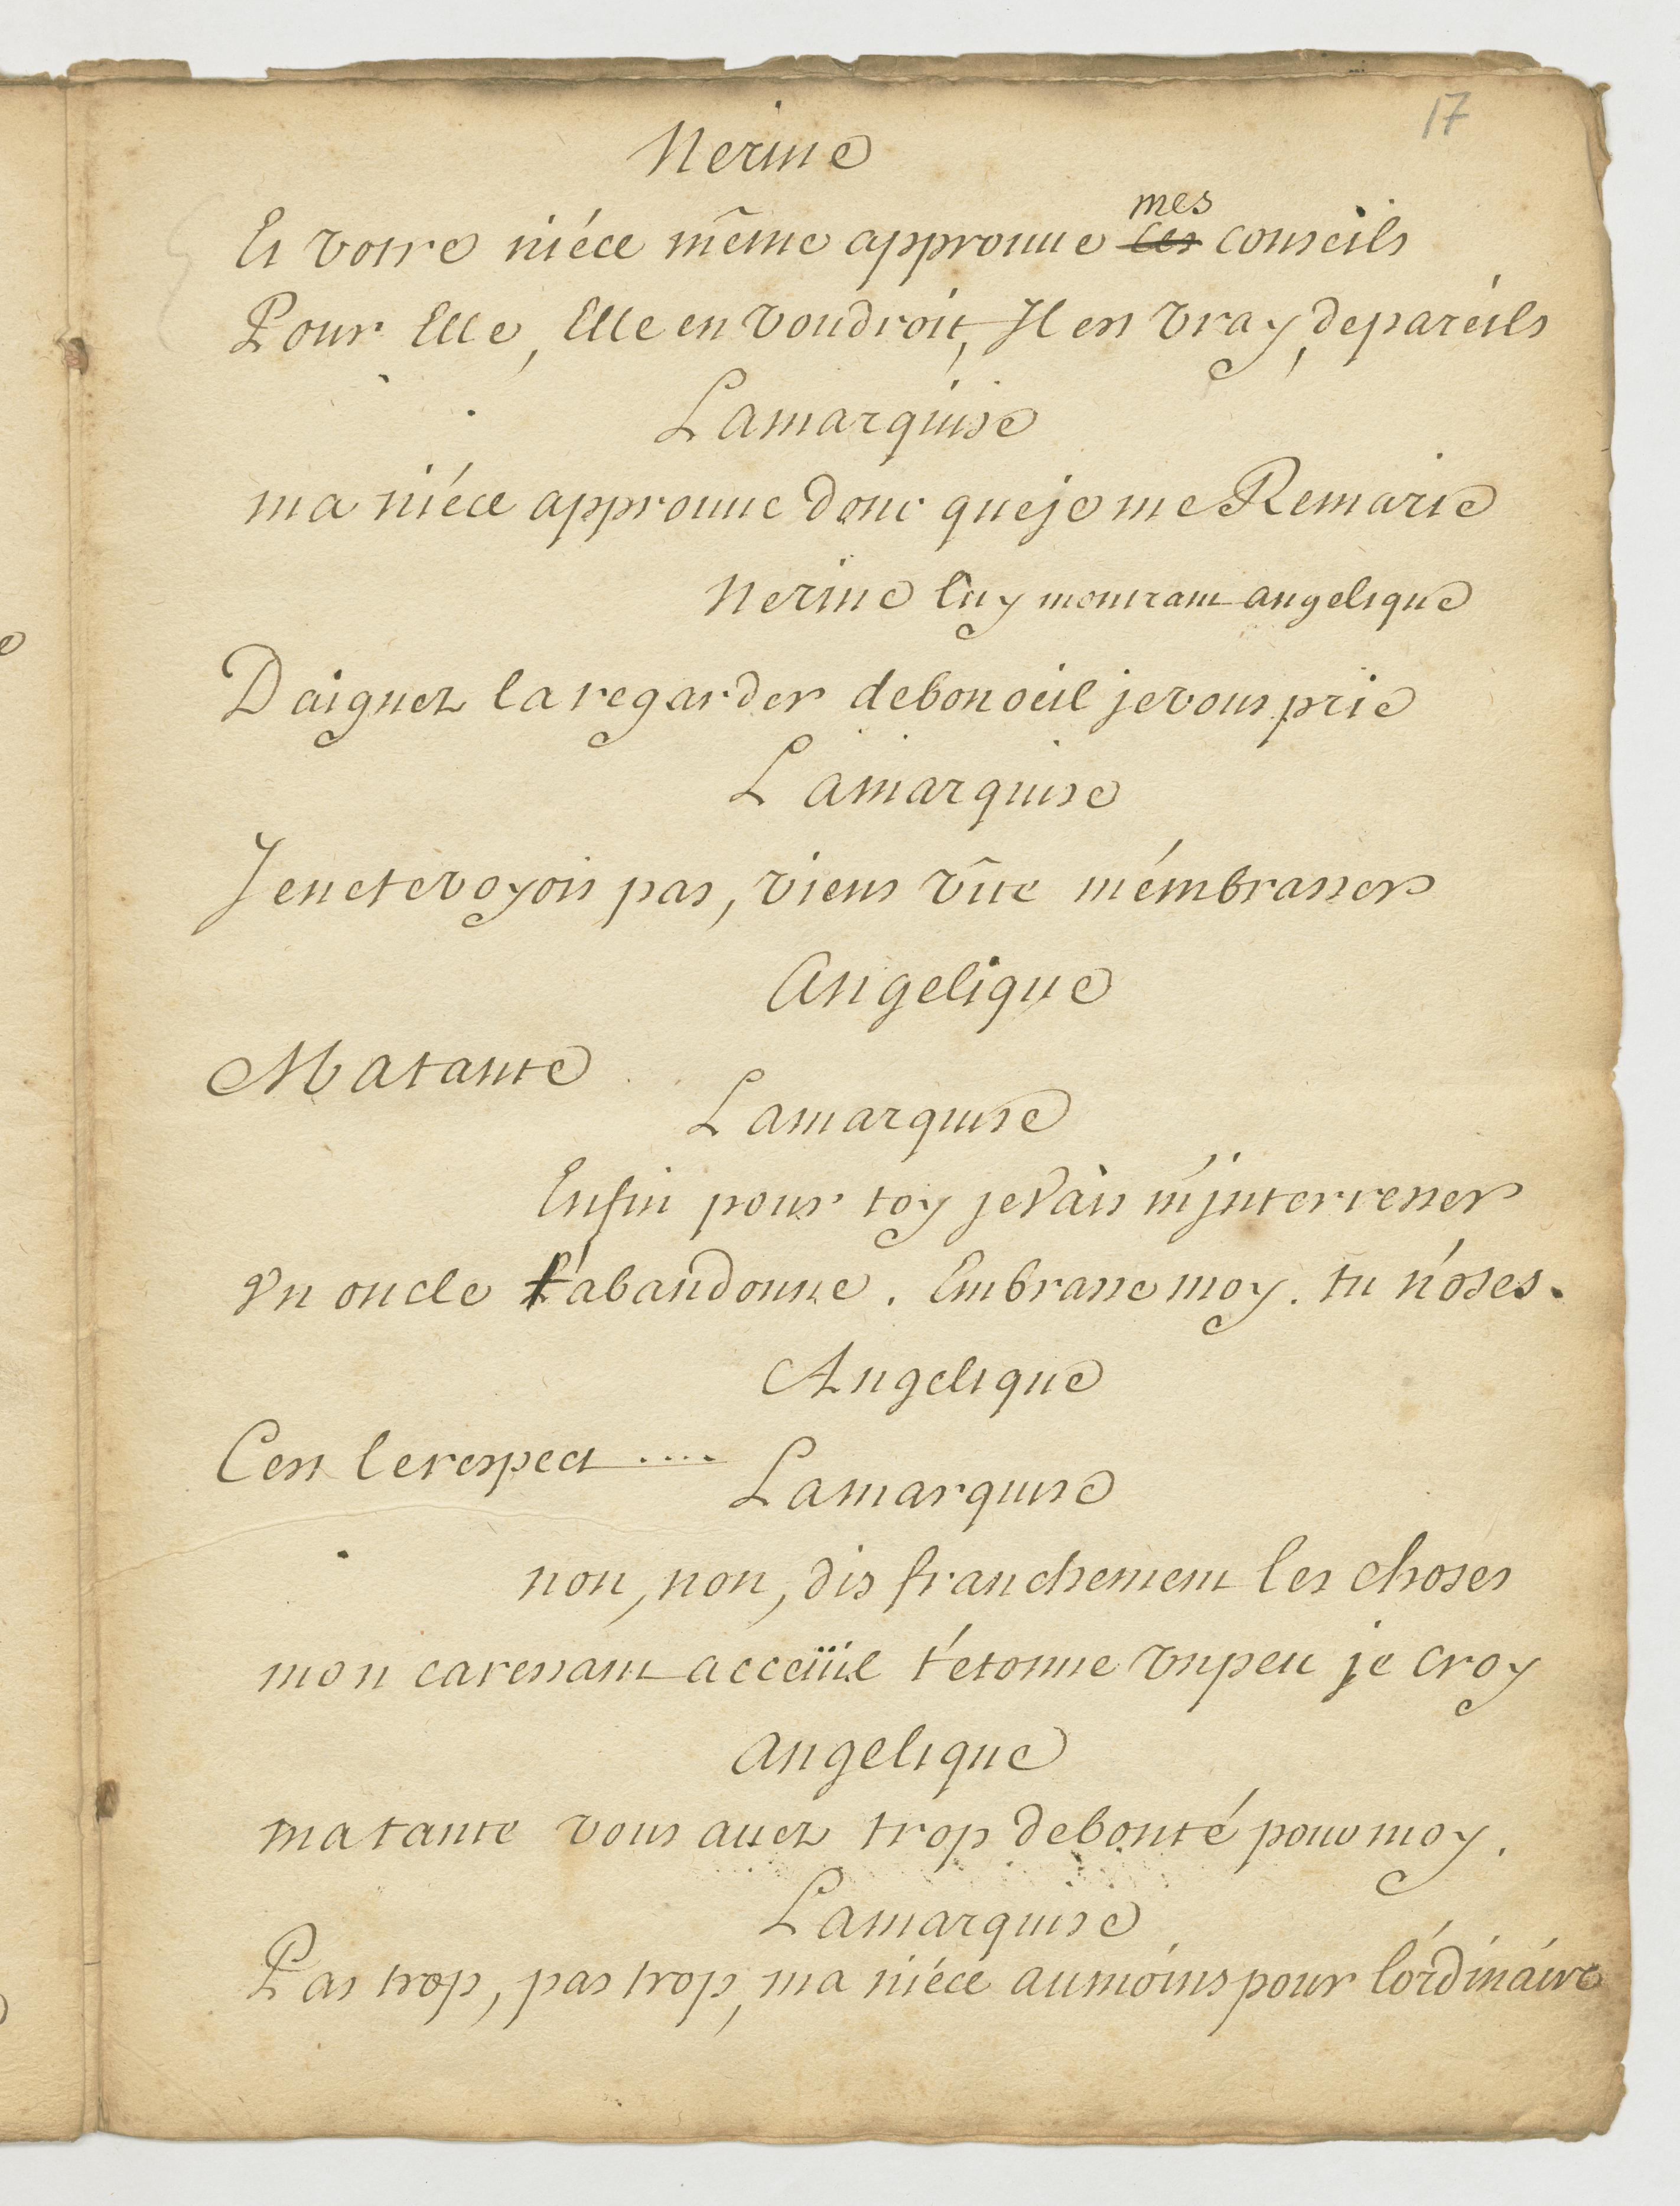 17
Nerine
Et votre niéce même approuue ces mes conseils
Pour Elle, Elle en voudroit, Il est vray, de pareils
La marquise
ma niéce approuue donc que je me Remarie
Nerine luy montrant angelique
Daignez la regarder de bon oeil je vous prie
La marquise
Je ne te voyois pas, viens vîte m'émbrasser
Angelique
Ma tante
La marquise
Enfin pour toy je vais m'jnterresser
Vn oncle t'abandonne. Embrasse moy. tu n'oses.
Angelique
C'est le respect ....
La marquise
non, non, dis franchement les choses
mon caressant acceüil t'etonne vn peu je croy
angelique
ma tante vous auez trop de bonté pour moy.
La marquise
Pas trop, pas trop, ma niéce au moins pour l'ordinaire